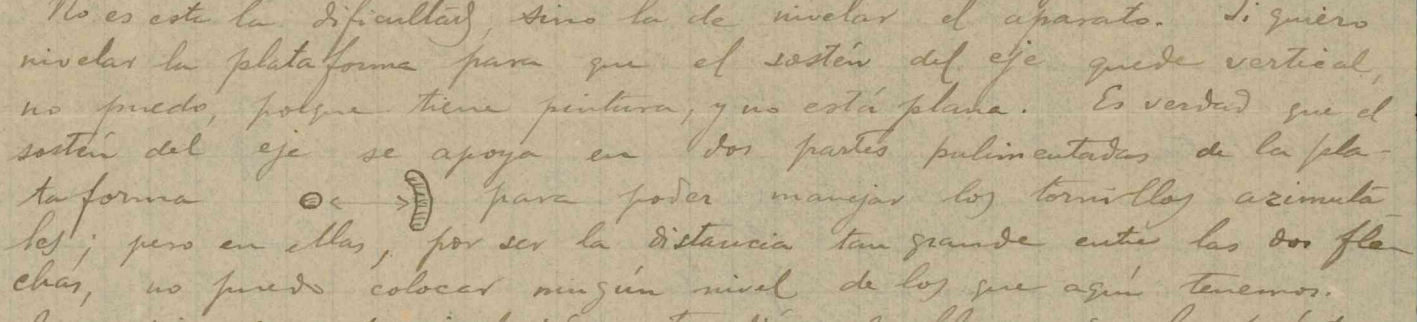 No es esta la dificultad, sino la de nivelar el aparato. Si quiero
nivelar la plataforma para que el sostén del eje quede vertical,
no puedo, porque tiene pintura, y no está plana. Es verdad que el
sostén del eje se apoya en dos partes pulimentadas de la pla-
taforma para poder manejar los tornillos azimuta
les; pero en ellas, por ser la distancia tan grande entre las dos fle-
chas, no puedo colocar ningún nivel de los que aquí tenemos.